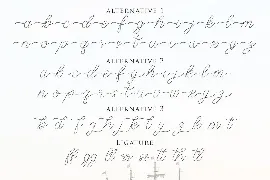 ALTERNATIVE 1
a-b-c-d-e-f-g-h-i-j-k-l-m
n-o-p-q-r-s-t-u-v-w-x-y-z
ALTERNATIVE 2
a b c d e f g h i j k l m
n o p q r s t u v w x y z
ALTERNATIVE 3
b d f g h j k l y
LIGATURE
ff gg ll
tt th tl